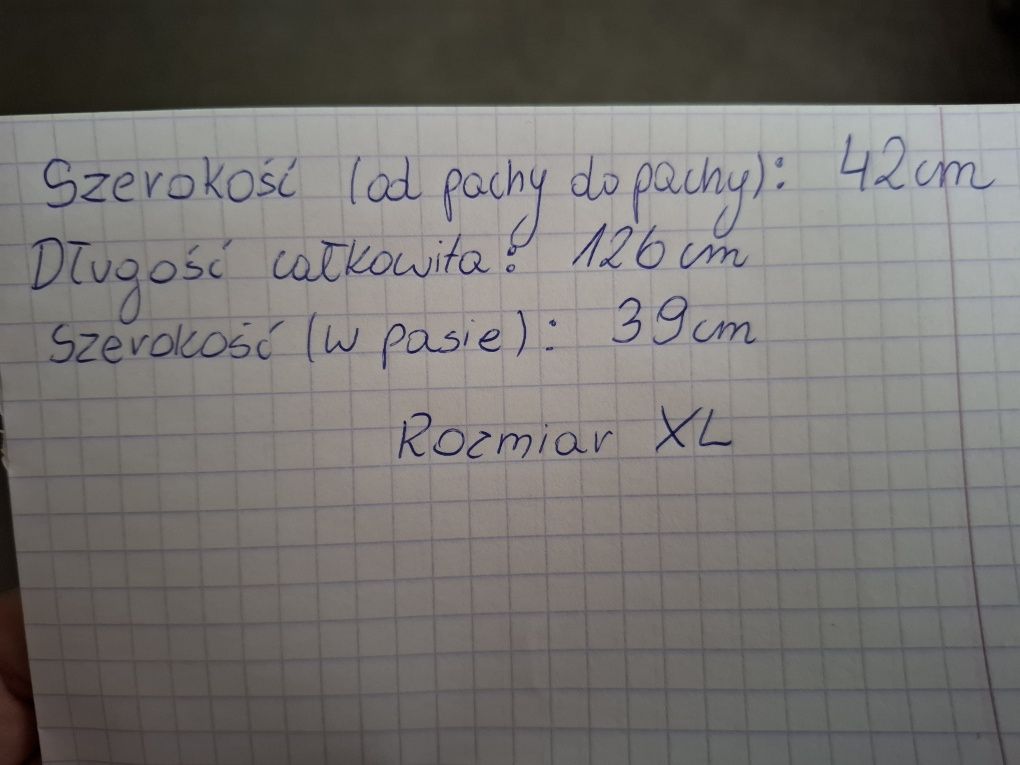 Szerokość (od pachy do pachy): 42cm
Długość całkowita: 126cm
Szerokość (w pasie): 39cm
Rozmiar XL